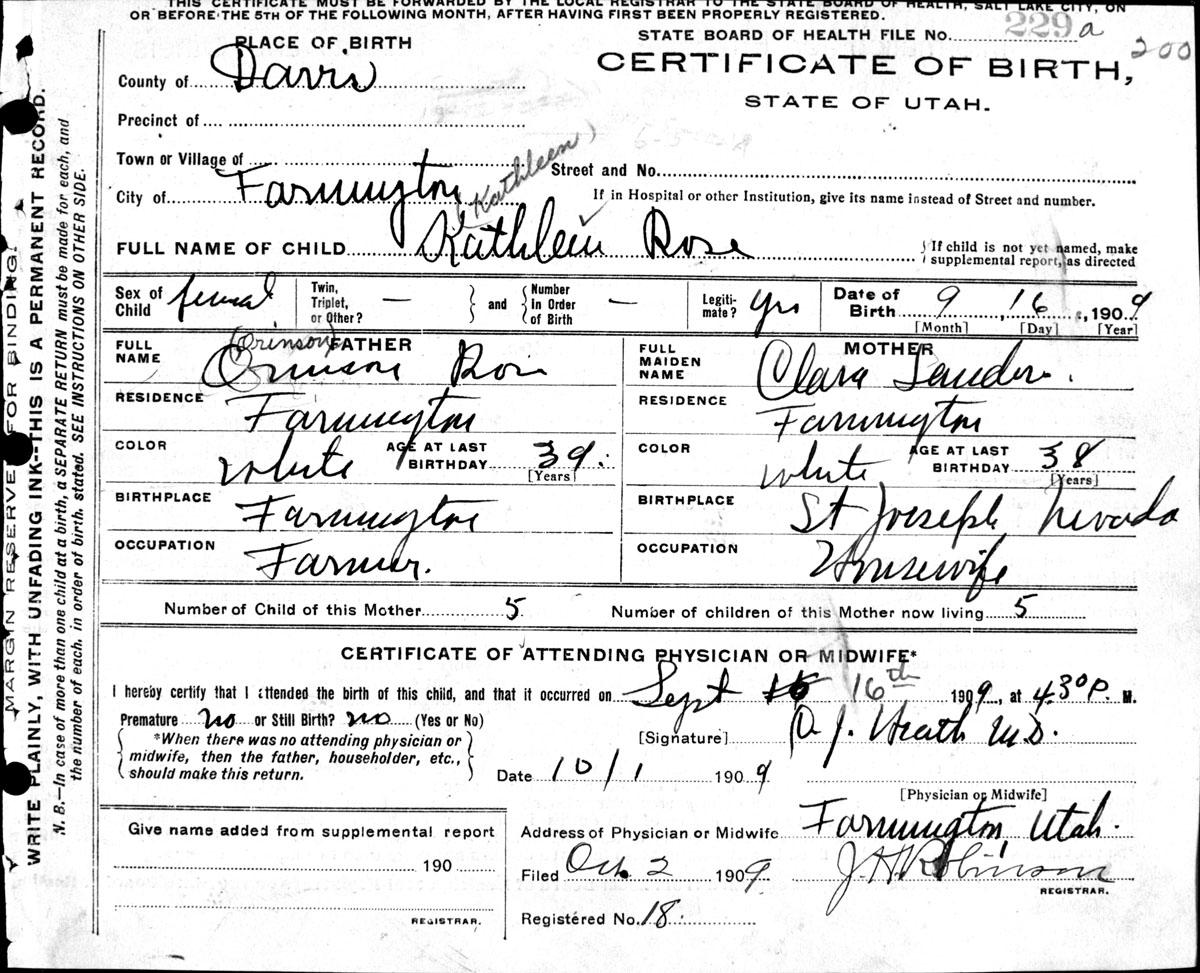 THIS CERTIFICATE MUST BE FORWARDED BY THE LOCAL REGISTRAR TO THE STATE BOARD OF HEALTH, SALT LAKE CITY, ON
OR BEFORE THE 5TH OF THE FOLLOWING MONTH, AFTER HAVING FIRST BEEN PROPERLY REGISTERED.
STATE BOARD OF HEALTH FILE NO. 229 a
200
PLACE OF BIRTH
County of Davis
CERTIFICATE OF BIRTH,
STATE OF UTAH.
Precinct of
Town or Village of
Street and No.
City of Farmington
If in Hospital or other Institution, give its name instead of Street and number.
(Kathleen)
FULL NAME OF CHILD Kathlein Rose
If child is not yet named, make supplemental report, as directed
Sex of Child femal
Twin, Triplet, or Other? —
and
Number in Order of Birth —
Legitimate? yes
Date of Birth 9, 16, 1909
[Month] [Day] [Year]
FATHER
FULL NAME (Orinson)
Rose
RESIDENCE Farmington
COLOR White
AGE AT LAST BIRTHDAY 39.
[Years]
BIRTHPLACE Farmington
OCCUPATION Farmer.
MOTHER
FULL MAIDEN NAME Clara
RESIDENCE Farmington
COLOR White
AGE AT LAST BIRTHDAY 38
[Years]
BIRTHPLACE St Joseph Nevada
OCCUPATION Housewife
Number of Child of this Mother 5
Number of children of this Mother now living 5
CERTIFICATE OF ATTENDING PHYSICIAN OR MIDWIFE*
I hereby certify that I attended the birth of this child, and that it occurred on Sept 16th 1909, at 430 P. M.
Premature no or Still Birth? no (Yes or No)
[Signature] J. Heath M.D.
*When there was no attending physician or midwife, then the father, householder, etc., should make this return.
Date 10/1 1909
[Physician or Midwife]
Give name added from supplemental report
190
REGISTRAR.
Address of Physician or Midwife Farmington, Utah.
Filed Oct. 2 1909
J. H. Robinson
REGISTRAR.
Registered No. 18.
MARGIN RESERVED FOR BINDING.
WRITE PLAINLY, WITH UNFADING INK--THIS IS A PERMANENT RECORD.
N. B.—In case of more than one child at a birth, a SEPARATE RETURN must be made for each, and
the number of each, in order of birth, stated. SEE INSTRUCTIONS ON OTHER SIDE.